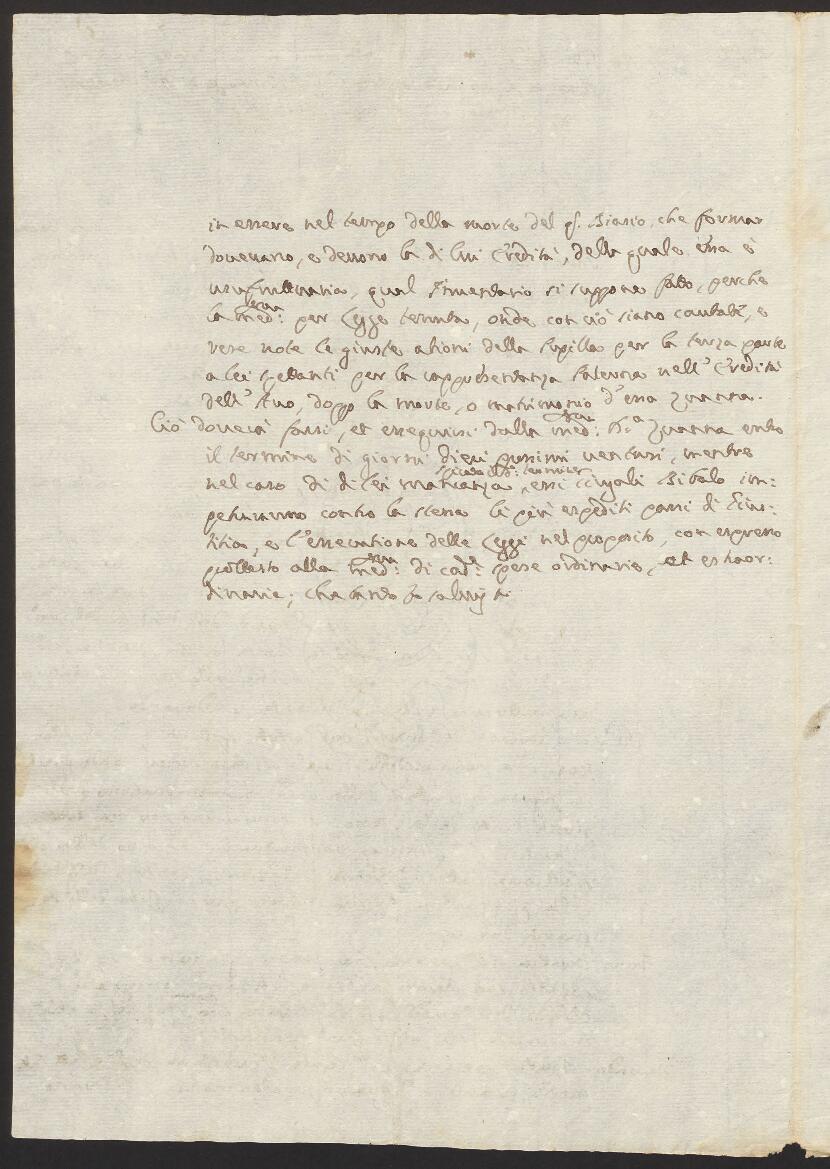 in essere nel tempo della morte del q. Biasio, che forma-
vano, e devono la di lui Eredità, della quale essa è
usufruttuaria, qual Inventario si suppone fatto, perche
la med:sma per Legge tenuta, onde con ciò siano cautate, e
rese note le giuste ationi della Pupilla per la terza parte
a lei spettanti per la rappresentanza Paterna nell'Eredità
dell'Avo, doppo la morte, o matrimonio d'essa Zuanna.
Ciò doverà farsi, et essequirsi dalla med:sma Zuanna entro
il termine di giorni dieci prossimi venturi, mentre
nel caso di di lei mancanza, essi Giugali Bibalo im-
petrerano contro la stessa li più espediti passi di Gius-
titia, e l'essecutione delle Leggi nel proposito, con espresso
prottesto alla med:sma di cad:e spese ordinarie, et estraor-
dinarie;